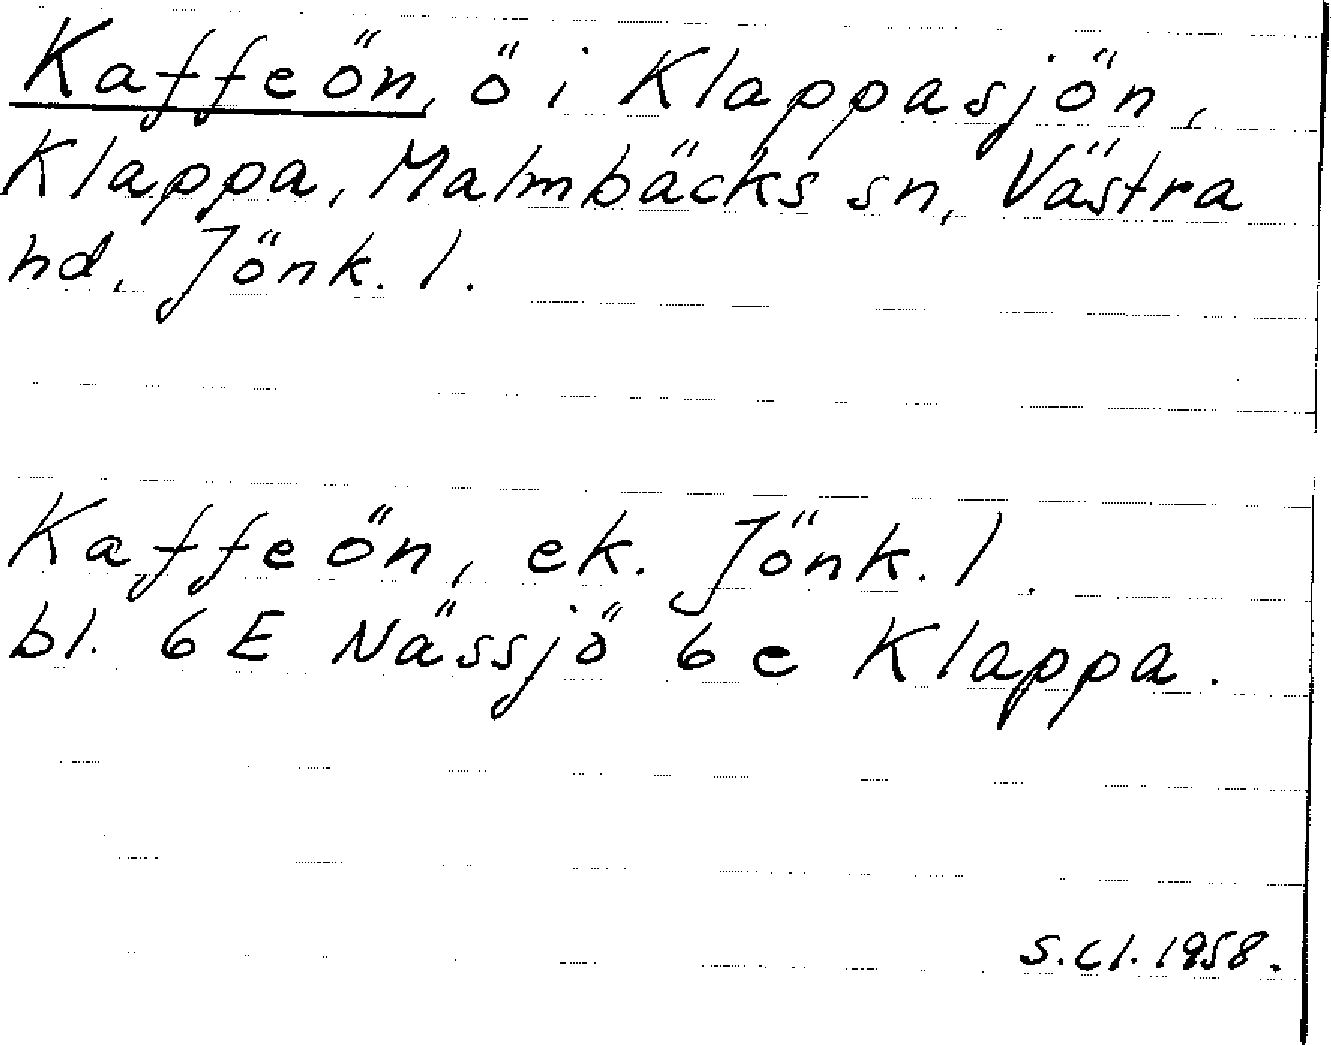 Kaffeön, ö i Klappasjön,
Klappa, Malmbäcks sn, Västra
hd, Jönk. l.
Kaffeön, ek. Jönk. l.
bl. 6E Nässjö 6e Klappa.
S.Cl. 1958.